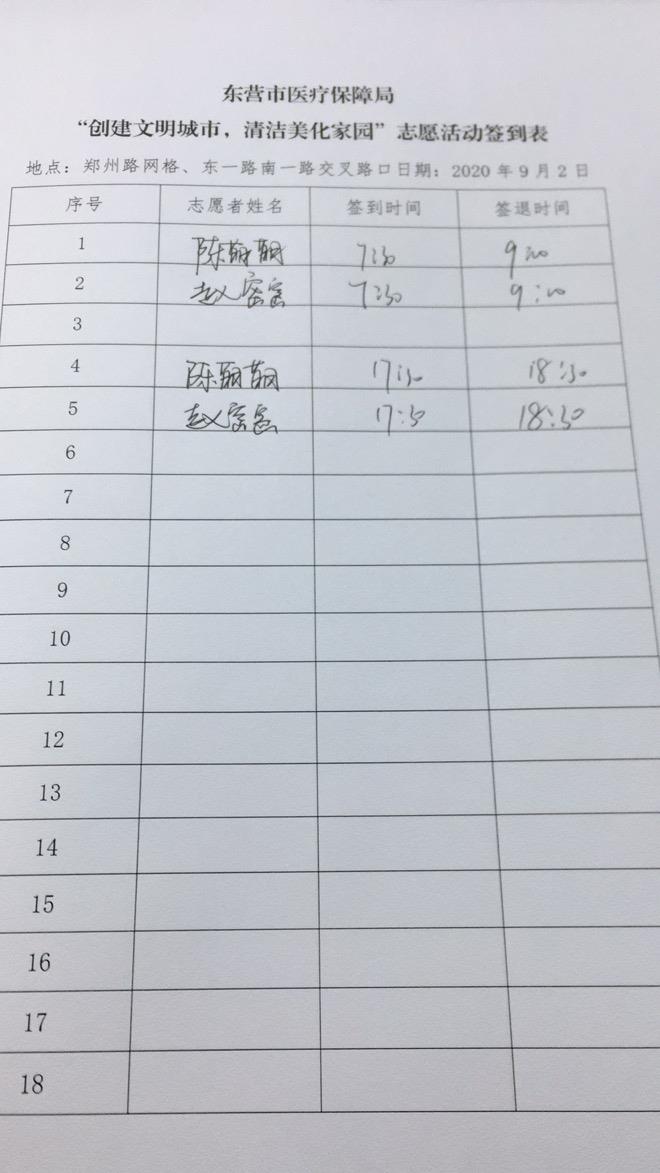 东营市医疗保障局
“创建文明城市，清洁美化家园”志愿活动签到表
地点：郑州路网格、东一路南一路交叉路口日期：2020年9月2日
序号 志愿者姓名 签到时间 签退时间
1 陈 7:30 9:00
2 赵 7:30 9:00
3
4 陈 17:30 18:30
5 赵 17:30 18:30
6
7
8
9
10
11
12
13
14
15
16
17
18